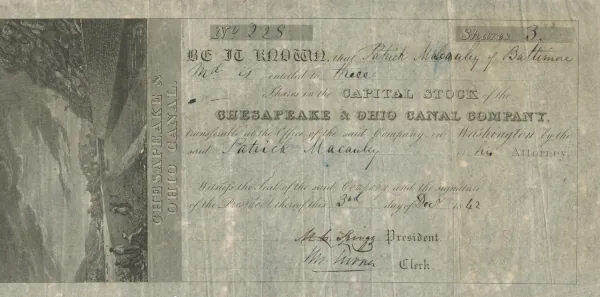 No 228 Shares 3.
BE IT KNOWN, that Patrick Macauley of Baltimore
Md is entitled to three
Shares in the CAPITAL STOCK of the
CHESAPEAKE & OHIO CANAL COMPANY,
transferable at the Office of the said Company in Washington by the
said Patrick Macauley his ATTORNEY.
Witness the Seal of the said Company and the signature
of the President thereof this 3rd day of 1842
President.
Turner Clerk
CHESAPEAKE &
OHIO CANAL.